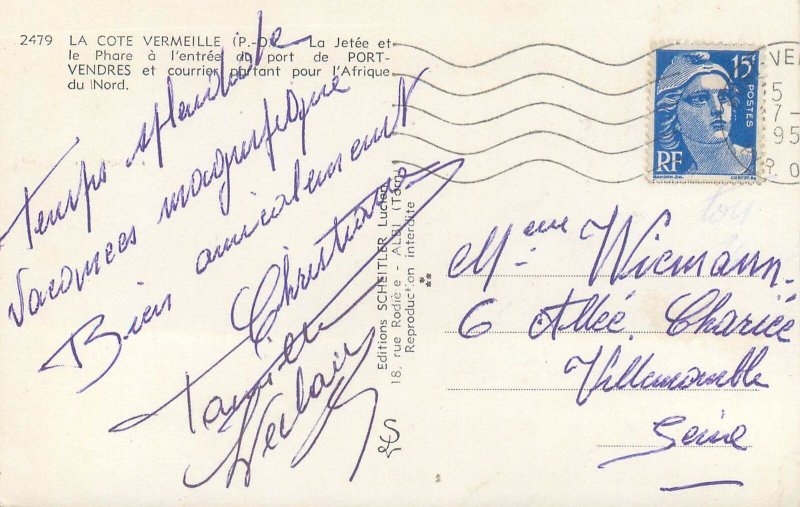 2479 LA COTE VERMEILLE (P.-O.) La Jetée et
le Phare à l'entrée du port de PORT-
VENDRES et courrier partant pour l'Afrique
du Nord.
Temps splendide
Vacances magnifique
Bien amicalement
Christiane
Famille
Editions SCHEITLER Lucien
18, rue Rodière - ALBI (Tarn)
Reproduction interdite
15F
POSTES
RF
VEN
5
7-
195
P. O
Mme Wiemann
6 Allée Chariée
Villemomble
Seine